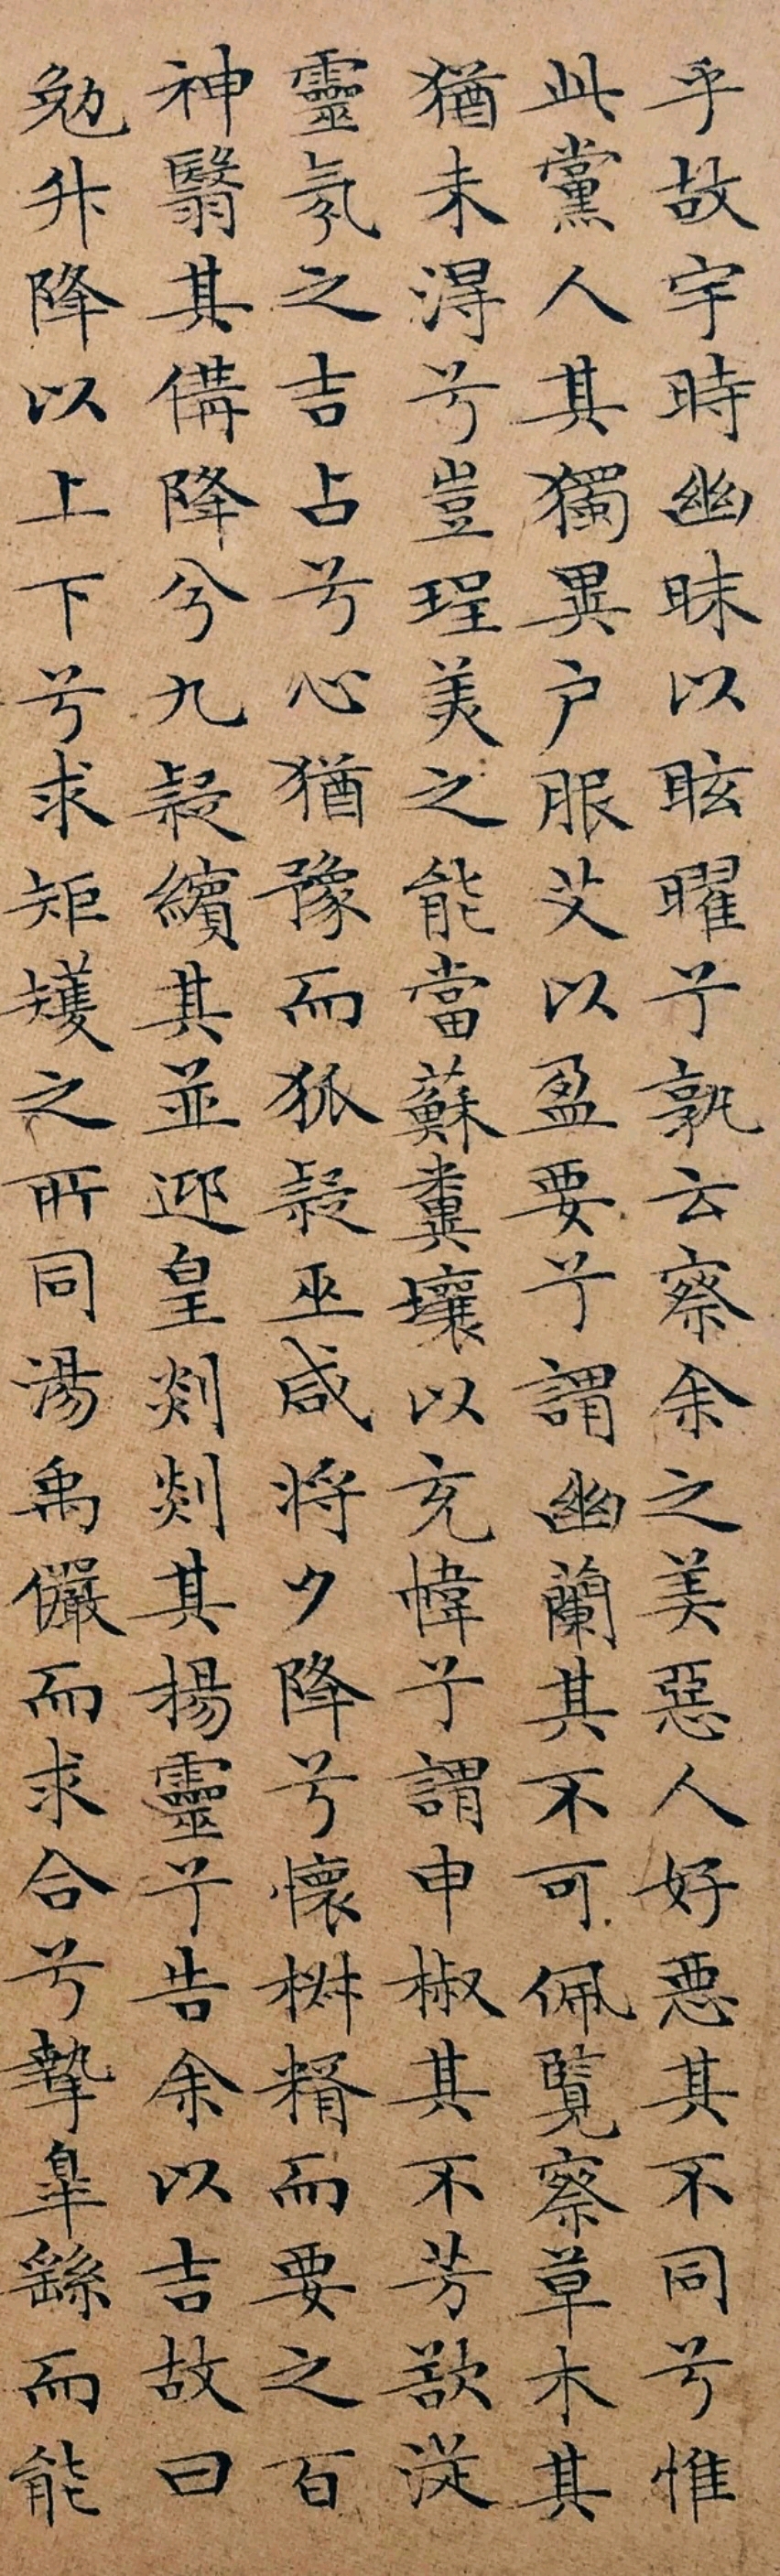 乎故宇時幽昧以眩曜兮孰云察余之美惡人好惡其不同兮惟
此黨人其獨異户服艾以盈要兮謂幽蘭其不可佩覽察草木其
猶未淂兮豈珵美之能當蘇糞壤以充幃兮謂申椒其不芳欲從
靈氛之吉占兮心猶豫而狐疑巫咸將夕降兮懷椒糈而要之百
神翳其備降兮九疑繽其並迎皇剡剡其楊靈兮告余以吉故曰
勉升降以上下兮求矩矱之所同湯禹儼而求合兮摯臯繇而能